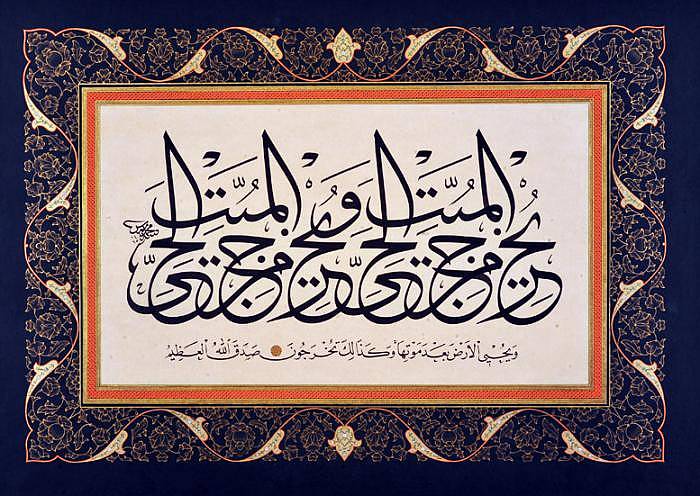 يُخْرِجُ الْحَيَّ مِنَ الْمَيِّتِ وَيُخْرِجُ الْمَيِّتَ مِنَ الْحَيِّ
وَيُحْيِي الْأَرْضَ بَعْدَ مَوْتِهَا وَكَذَٰلِكَ تُخْرَجُونَ صَدَقَ اللّٰهُ الْعَظِيمُ